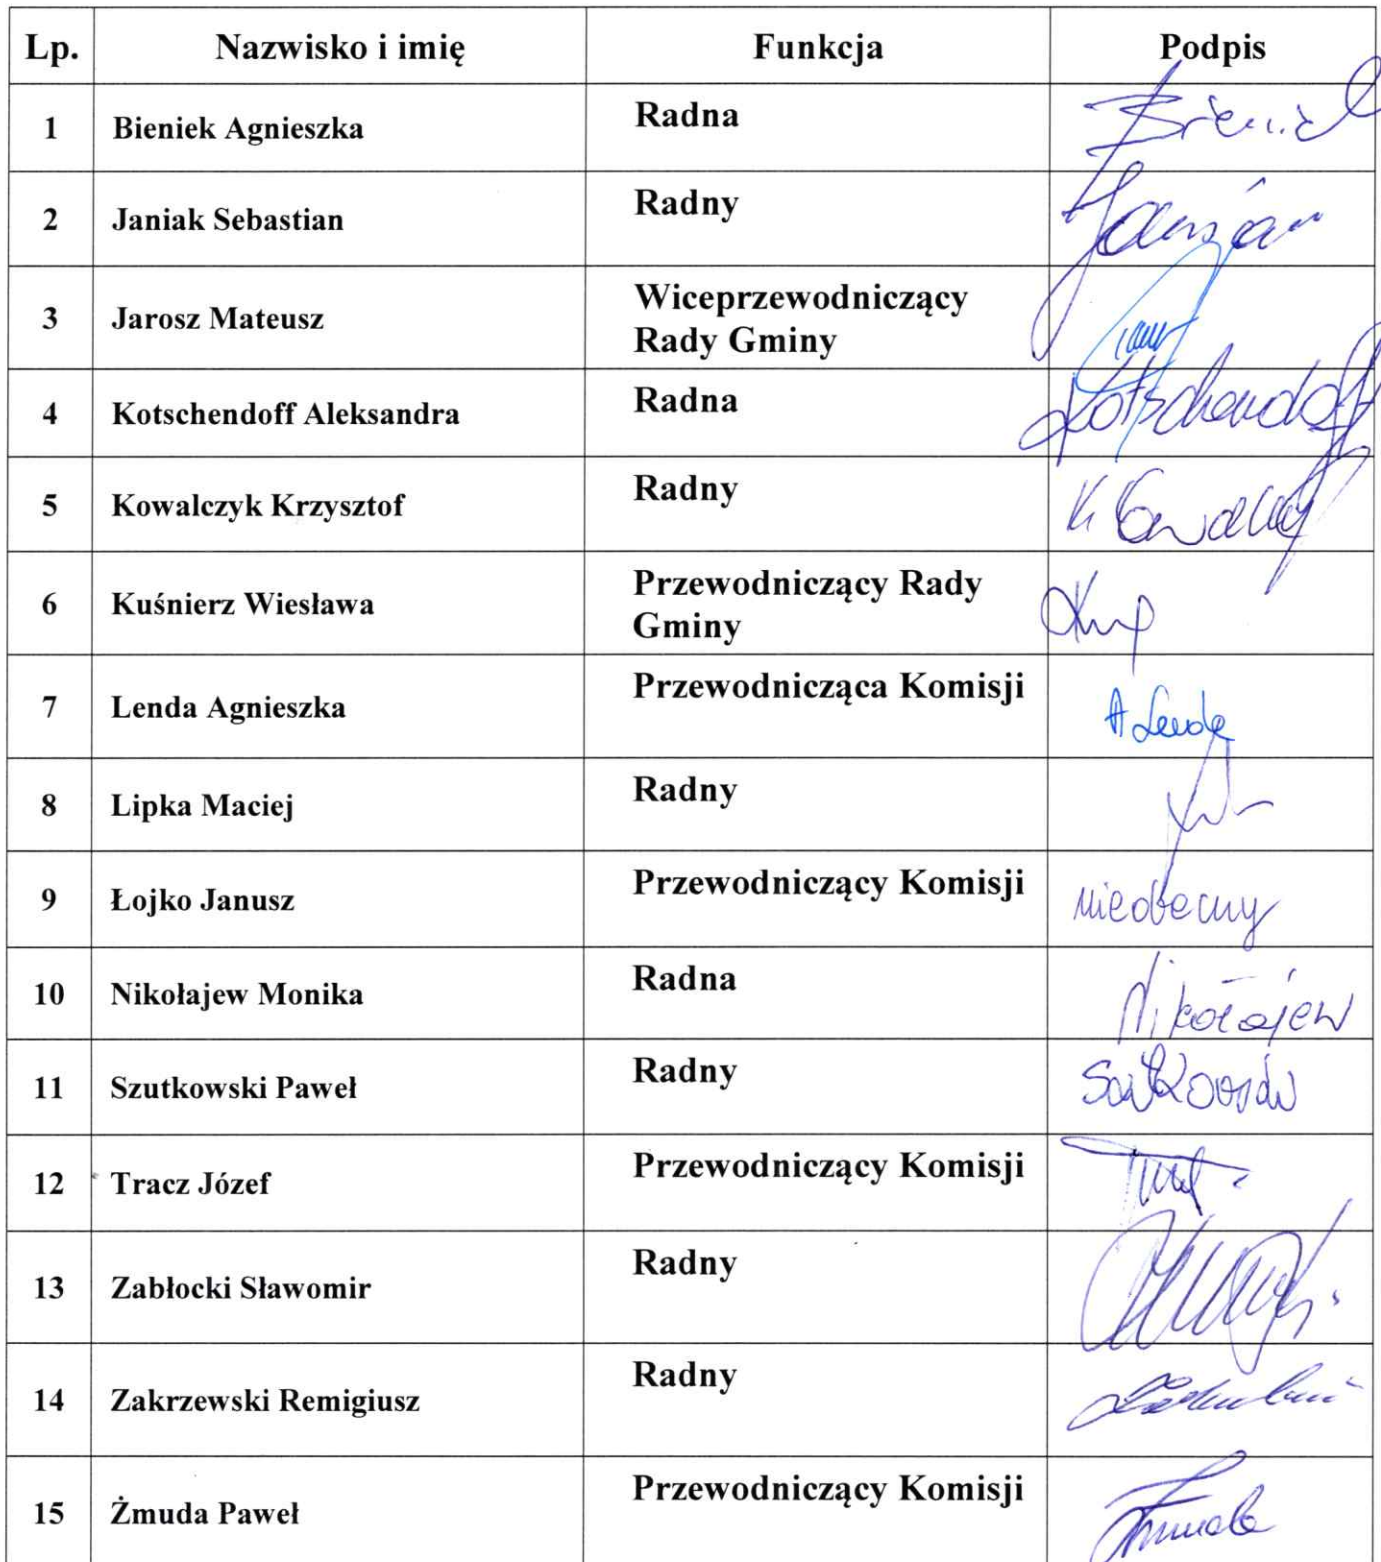 Lp. Nazwisko i imię Funkcja Podpis
1 Bieniek Agnieszka Radna
2 Janiak Sebastian Radny
3 Jarosz Mateusz Wiceprzewodniczący
Rady Gminy
4 Kotschendoff Aleksandra Radna Kotschendoff
5 Kowalczyk Krzysztof Radny
6 Kuśnierz Wiesława Przewodniczący Rady
Gminy
7 Lenda Agnieszka Przewodnicząca Komisji A Lenda
8 Lipka Maciej Radny
9 Łojko Janusz Przewodniczący Komisji nieobecny
10 Nikołajew Monika Radna Nikołajew
11 Szutkowski Paweł Radny
12 Tracz Józef Przewodniczący Komisji
13 Zabłocki Sławomir Radny
14 Zakrzewski Remigiusz Radny
15 Żmuda Paweł Przewodniczący Komisji